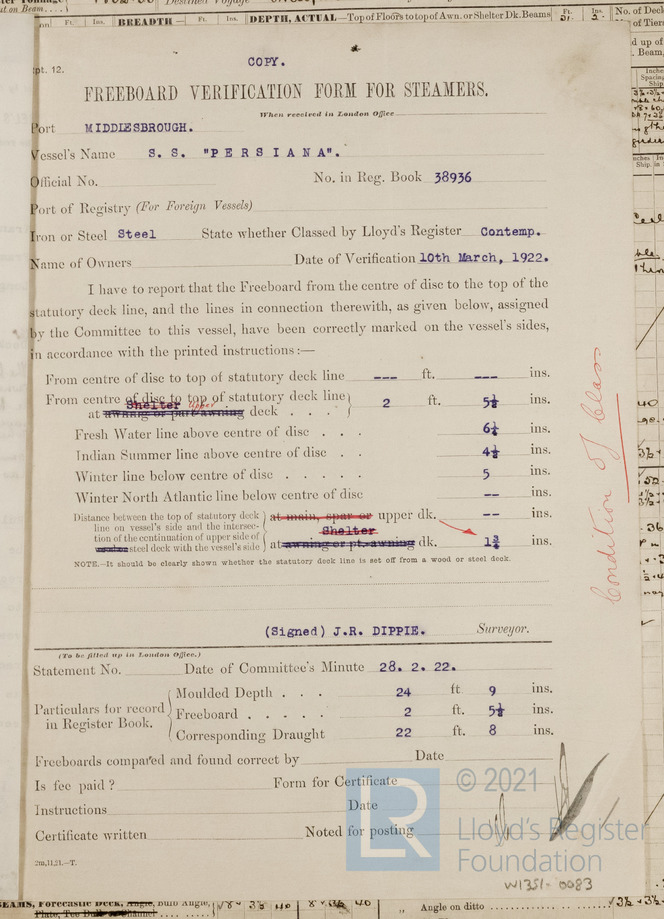 BREADTH — Ft. Ins. DEPTH, ACTUAL—Top of Floors to top of Awn. or Shelter Dk. Beams Ft. Ins. No. of Deck
COPY.
Rpt. 12.
FREEBOARD VERIFICATION FORM FOR STEAMERS.
When received in London Office
Port MIDDLESBROUGH.
Vessel's Name S. S. "PERSIANA".
Official No. No. in Reg. Book 38936
Port of Registry (For Foreign Vessels)
Iron or Steel Steel State whether Classed by Lloyd's Register Contemp.
Name of Owners Date of Verification 10th March, 1922.
I have to report that the Freeboard from the centre of disc to the top of the
statutory deck line, and the lines in connection therewith, as given below, assigned
by the Committee to this vessel, have been correctly marked on the vessel's sides,
in accordance with the printed instructions:—
From centre of disc to top of statutory deck line --- ft. --- ins.
From centre of disc to top of statutory deck line
Shelter Upper
at awning or part awning deck . . . 2 ft. 5½ ins.
Fresh Water line above centre of disc . . . 6¼ ins.
Indian Summer line above centre of disc . . 4½ ins.
Winter line below centre of disc . . . . . 5 ins.
Winter North Atlantic line below centre of disc -- ins.
Distance between the top of statutory deck
line on vessel's side and the intersec-
tion of the continuation of upper side of
steel deck with the vessel's side
at main, spar or upper dk. -- ins.
Shelter
at awning or pt. awning dk. 1¾ ins.
NOTE.—It should be clearly shown whether the statutory deck line is set off from a wood or steel deck.
Condition of Class
(Signed) J.R. DIPPIE. Surveyor.
(To be filled up in London Office.)
Statement No. Date of Committee's Minute 28. 2. 22.
Particulars for record
in Register Book.
Moulded Depth . . . 24 ft 9 ins.
Freeboard . . . . . 2 ft. 5½ ins.
Corresponding Draught 22 ft. 8 ins.
Freeboards compared and found correct by Date
Is fee paid? Form for Certificate
Instructions Date
Certificate written Noted for posting
2m,11,21.—T.
LR
© 2021
Lloyd's Register
Foundation
W1351-0083
BEAMS, Forecastle Deck, Angle, Bulb Angle,
Plate, Tee Bulb or Channel
„ Angle on ditto